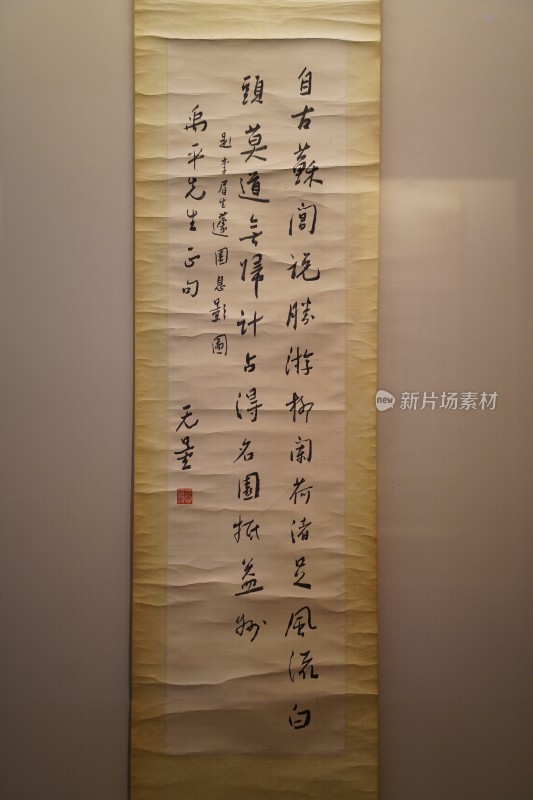 自古蘇閶說勝游柳闌荷渚足風流白
頭莫道無歸計占得名園抵益州
題李眉生蘧園息影圖
禹平先生正句
无量
new 新片场素材